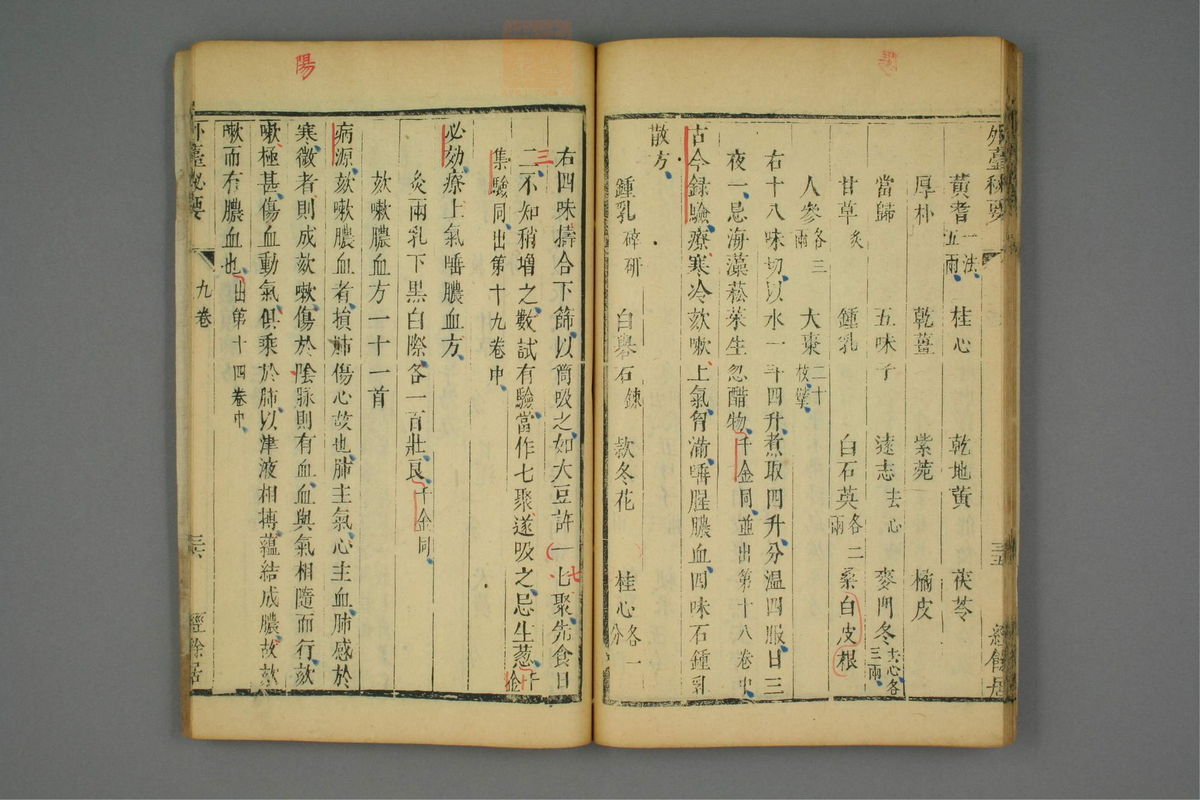 外臺秘要
黃耆一法五兩 桂心 乾地黃 茯苓
厚朴 乾薑 紫菀 橘皮
當歸 五味子 遠志去心 麥門冬去心各三兩
甘草炙 鍾乳 白石英各二兩 桑白皮根
人參各三兩 大棗二十枚擘
右十八味切以水一斗四升煮取四升分温四服日三
夜一忌海藻菘菜生忽醋物千金同並出第十八卷中
古今録驗療寒冷欬嗽上氣胷滿唾腥膿血四味石鍾乳
散方
鍾乳碎研 白礬石鍊 款冬花 桂心各一分
三五 經餘居
右四味擣合下篩以筒吸之如大豆許一匕聚先食日
三
七
二不知稍增之數試有驗當作七聚遂吸之忌生葱千金
集驗同出第十九卷中
必効療上氣唾膿血方
灸兩乳下黑白際各一百壯良千金同
欬嗽膿血方一十一首
病源欬嗽膿血者損肺傷心故也肺主氣心主血肺感於
寒微者則成欬嗽傷於陰脉則有血血與氣相隨而行欬
嗽極甚傷血動氣俱乘於肺以津液相搏蘊結成膿故欬
嗽而有膿血也出第十四卷中
外臺秘要 九卷 三六 經餘居
陽